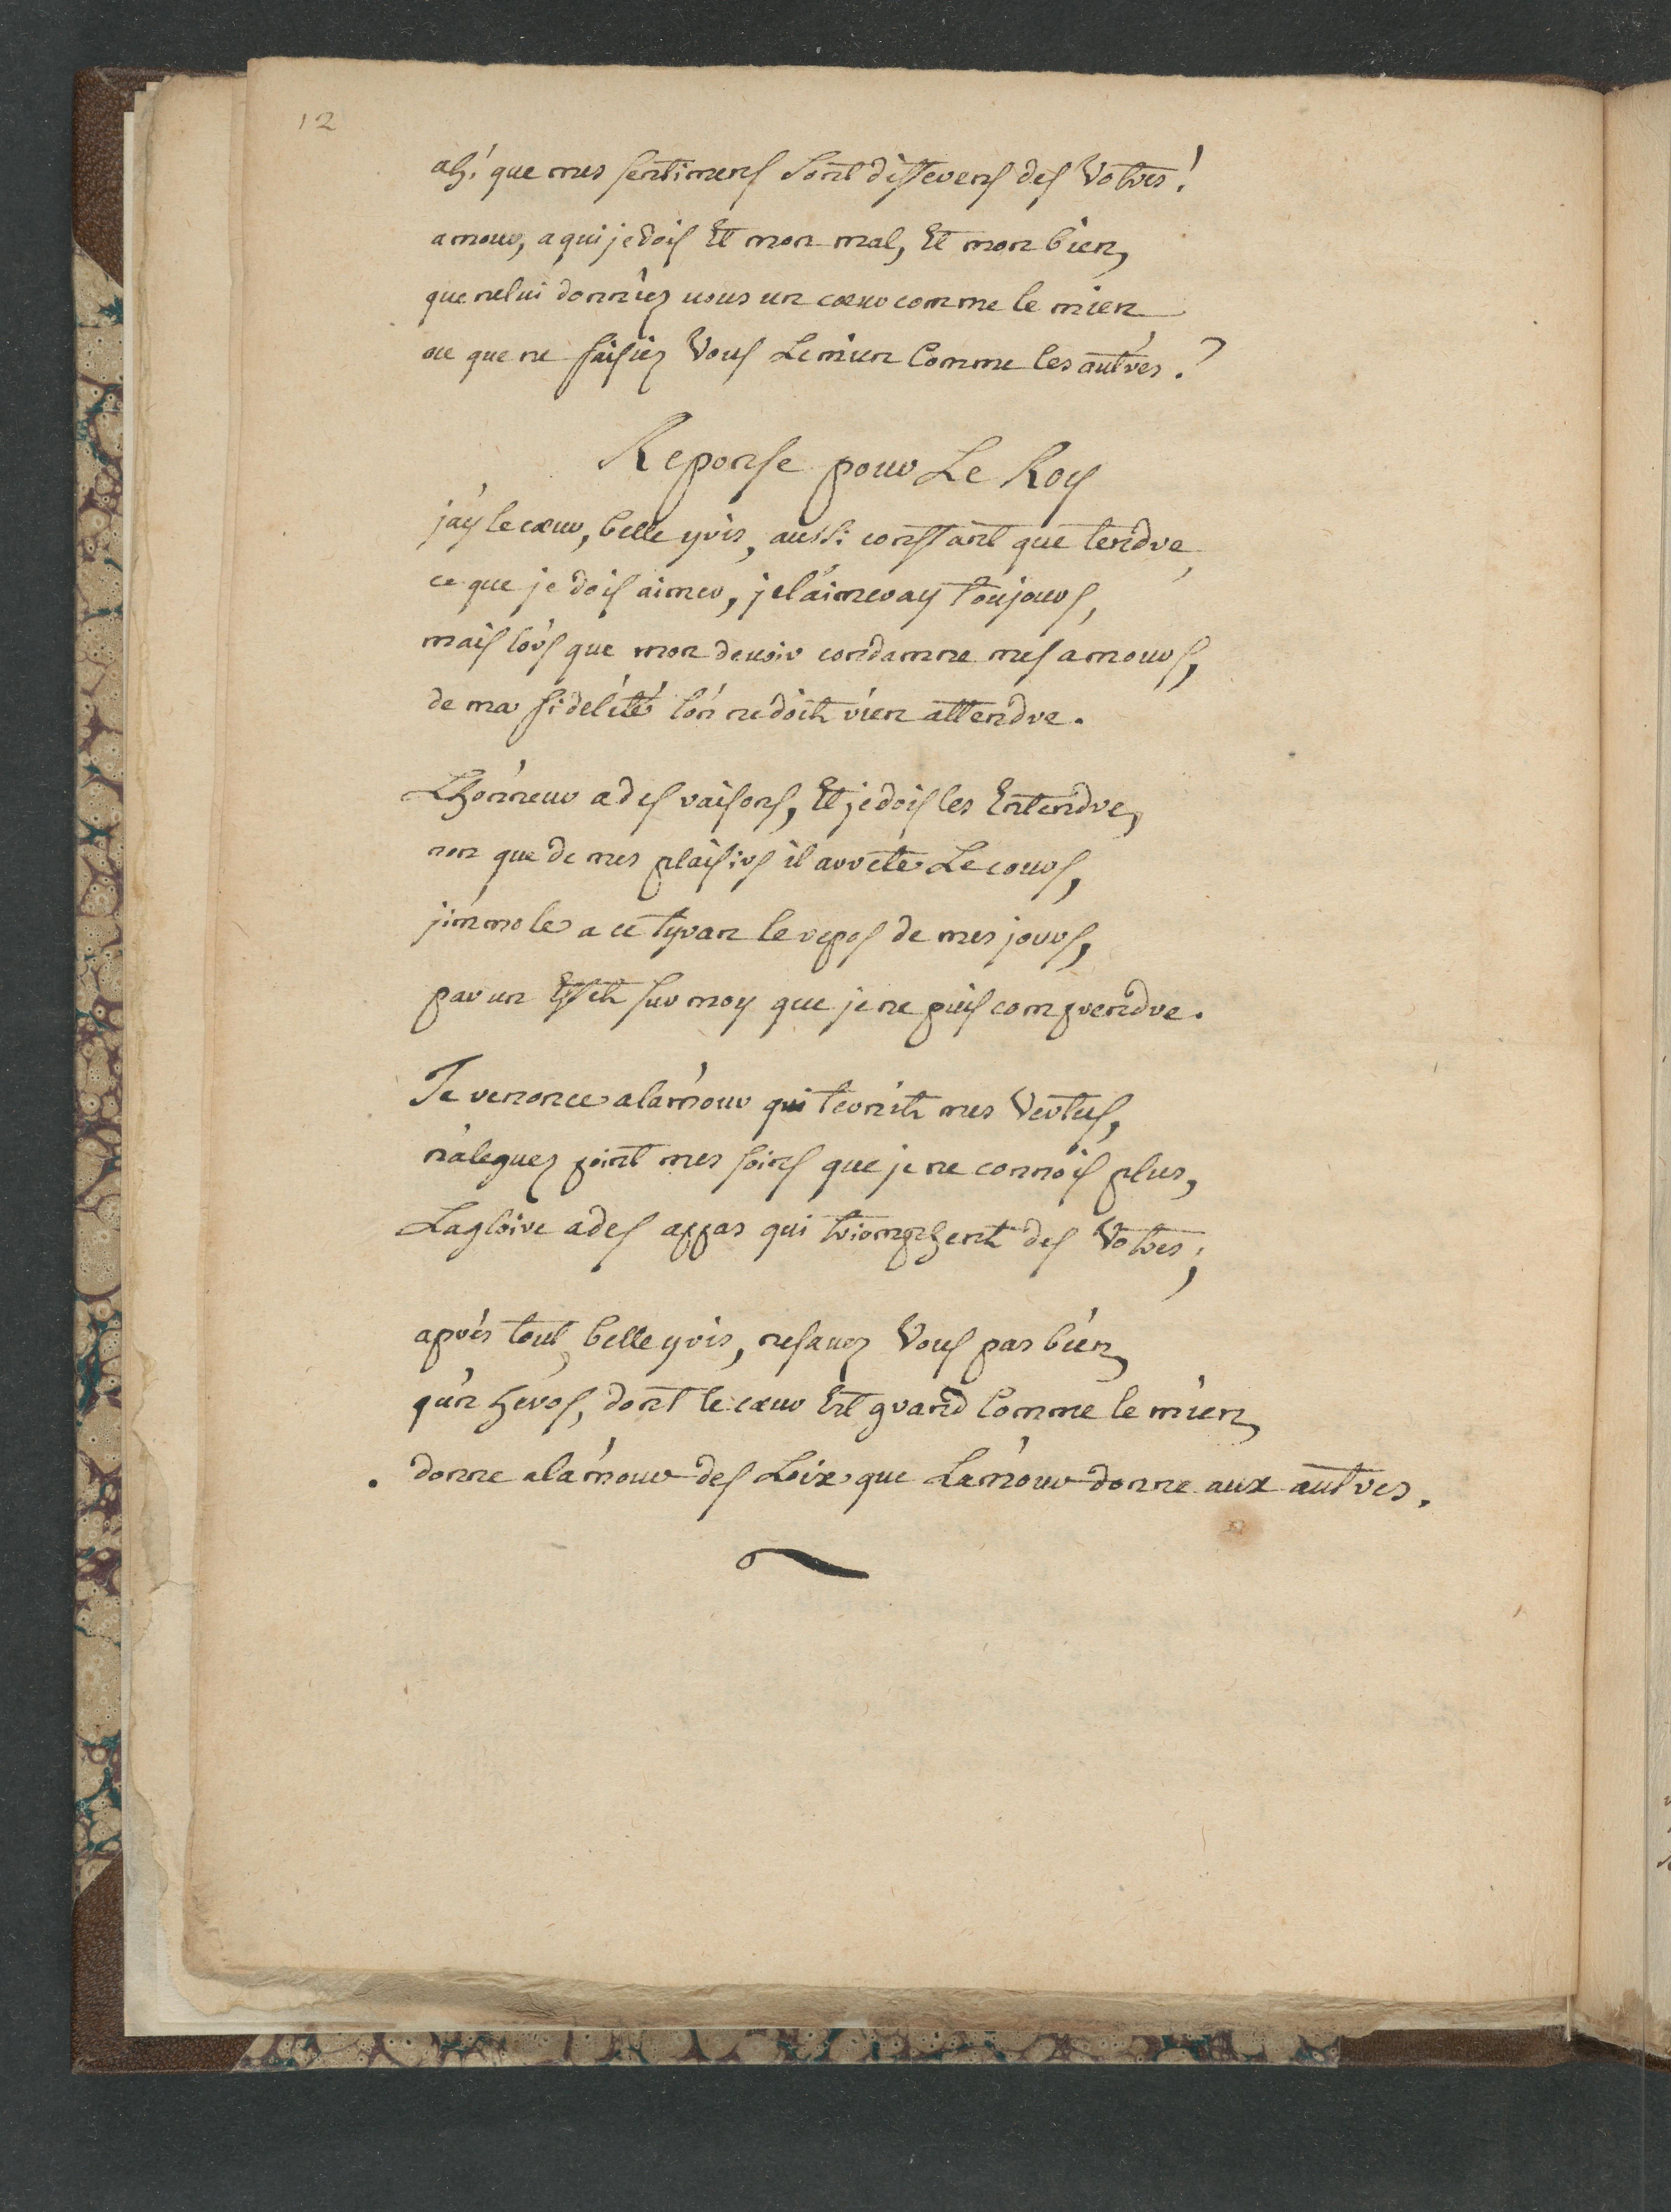 12
ah! que mes sentimens sont differens des Votres!
amour, a qui je dois Et mon mal, Et mon bien,
que ne lui donniez uous un cœur comme le mien
ou que ne faisiez Vous Le mien Comme les autres?
Reponse pour Le Roy
j'ay le cœur, belle yris, aussi constant que tendre,
ce que je dois aimer, je l'aimeray toujours,
mais lors que mon deuoir condamne mes amours,
de ma fidelité l'on ne doit rien attendre.
L'honneur a des raisons, Et je dois les Entendre,
non que de mes plaisirs il arrete Le cours,
j'immole a ce tyran le repos de mes jours,
par un Effet sur moy que je ne puis comprendre.
Je renonce a l'amour qui ternit mes Vertus,
n'aleguez point mes soins que je ne connois plus,
La gloire a des appas qui triomphent des Votres;
aprés tout, belle yris, ne sauez Vous pas bien,
qu'un heros, dont le cœur Est grand Comme le mien,
donne a l'amour des Loix que L'amour donne aux autres.